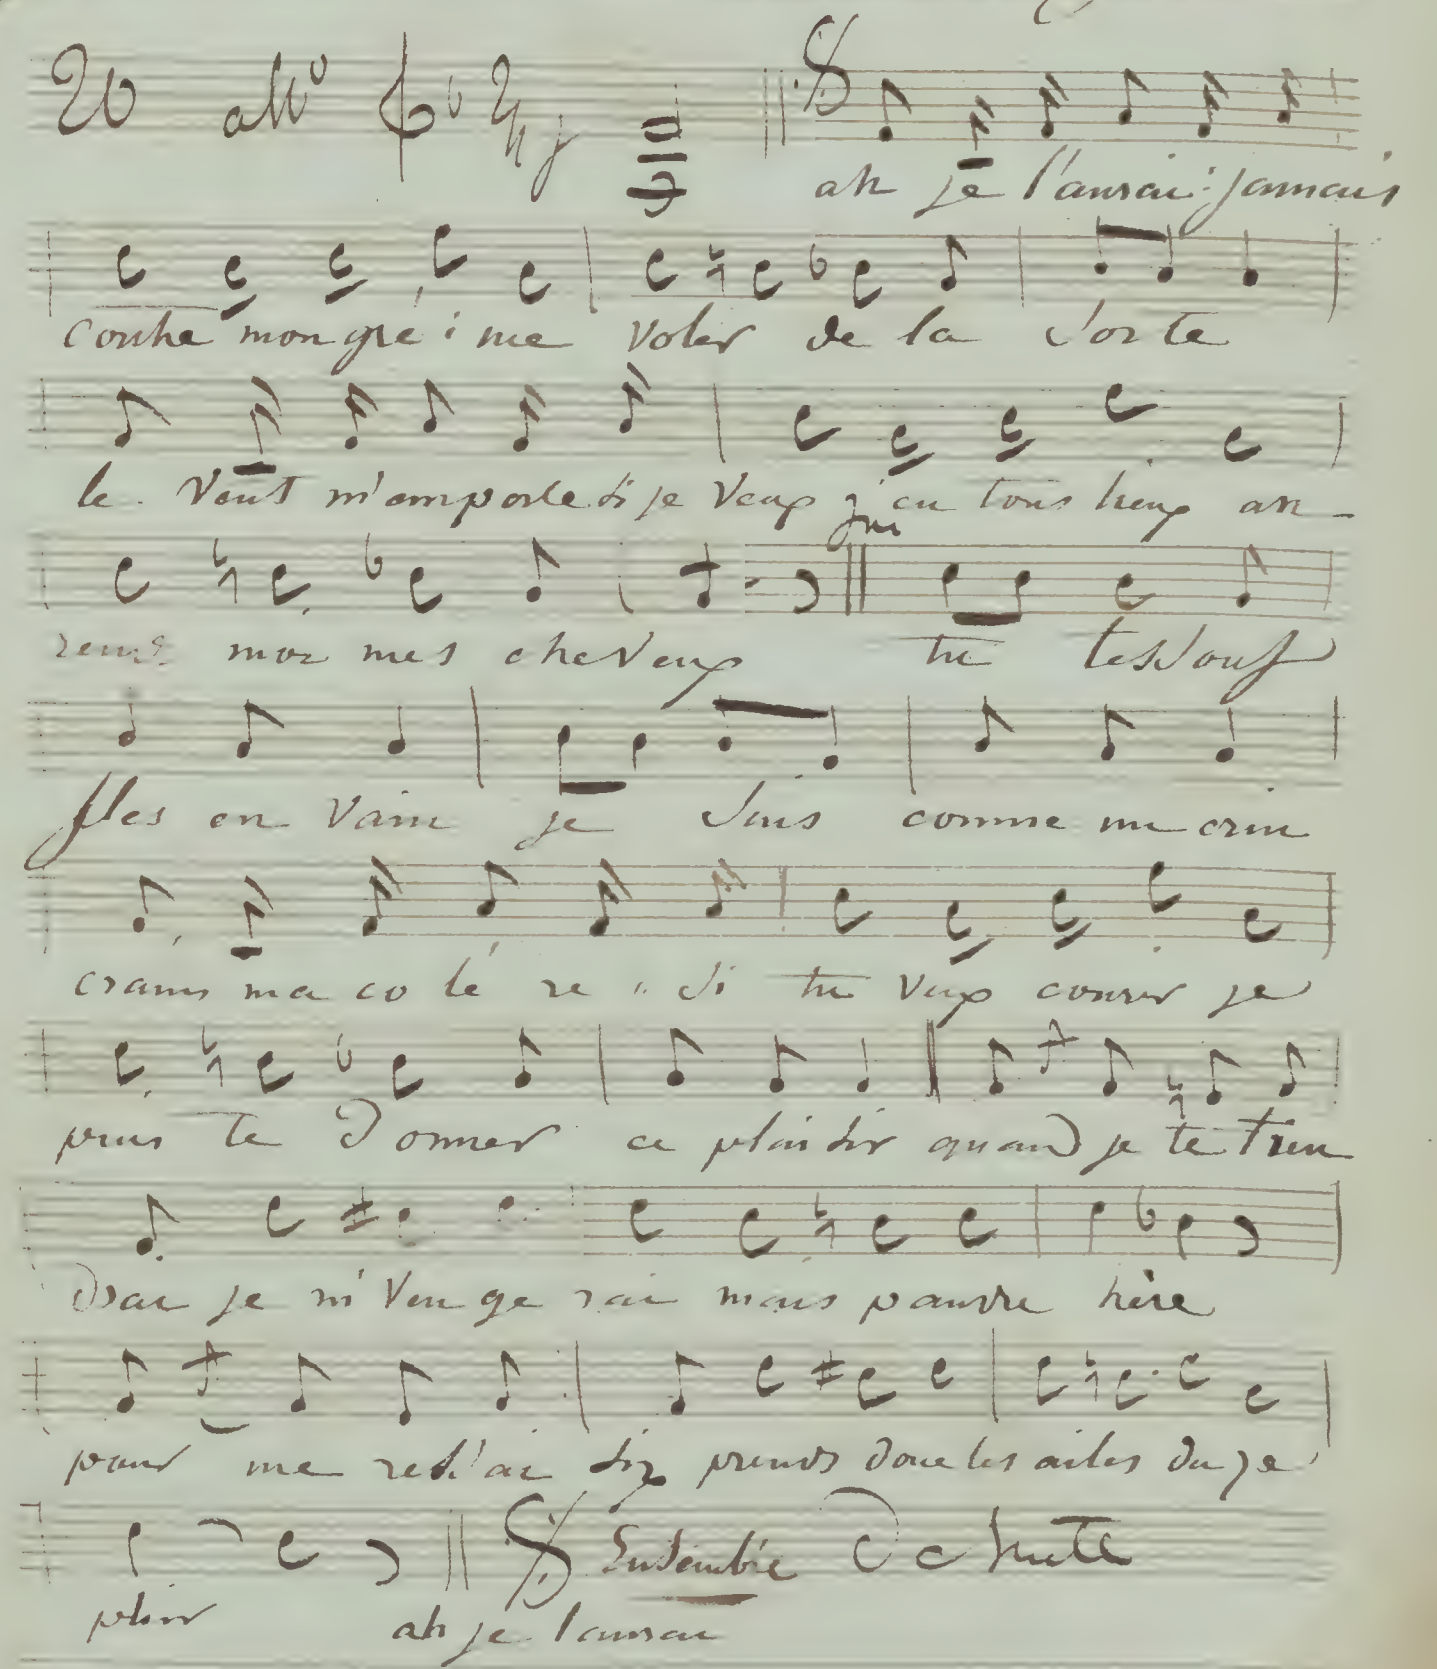 20 all°
ah je l'aurai jamais
contre mon gré me voler de la sorte
le vent m'emporte si je veux en tous lieux ah
fin
rends moi mes cheveux tu tes souf
fles en vain je suis comme un crin
crains ma co lé re si tu veux courir je
puis te donner ce plaisir quand je te tien
drai je m'venge rai mais pauvre hère
pour me redi'ai prends donc les ailes du zé
phir ah je l'aurai Ensemble